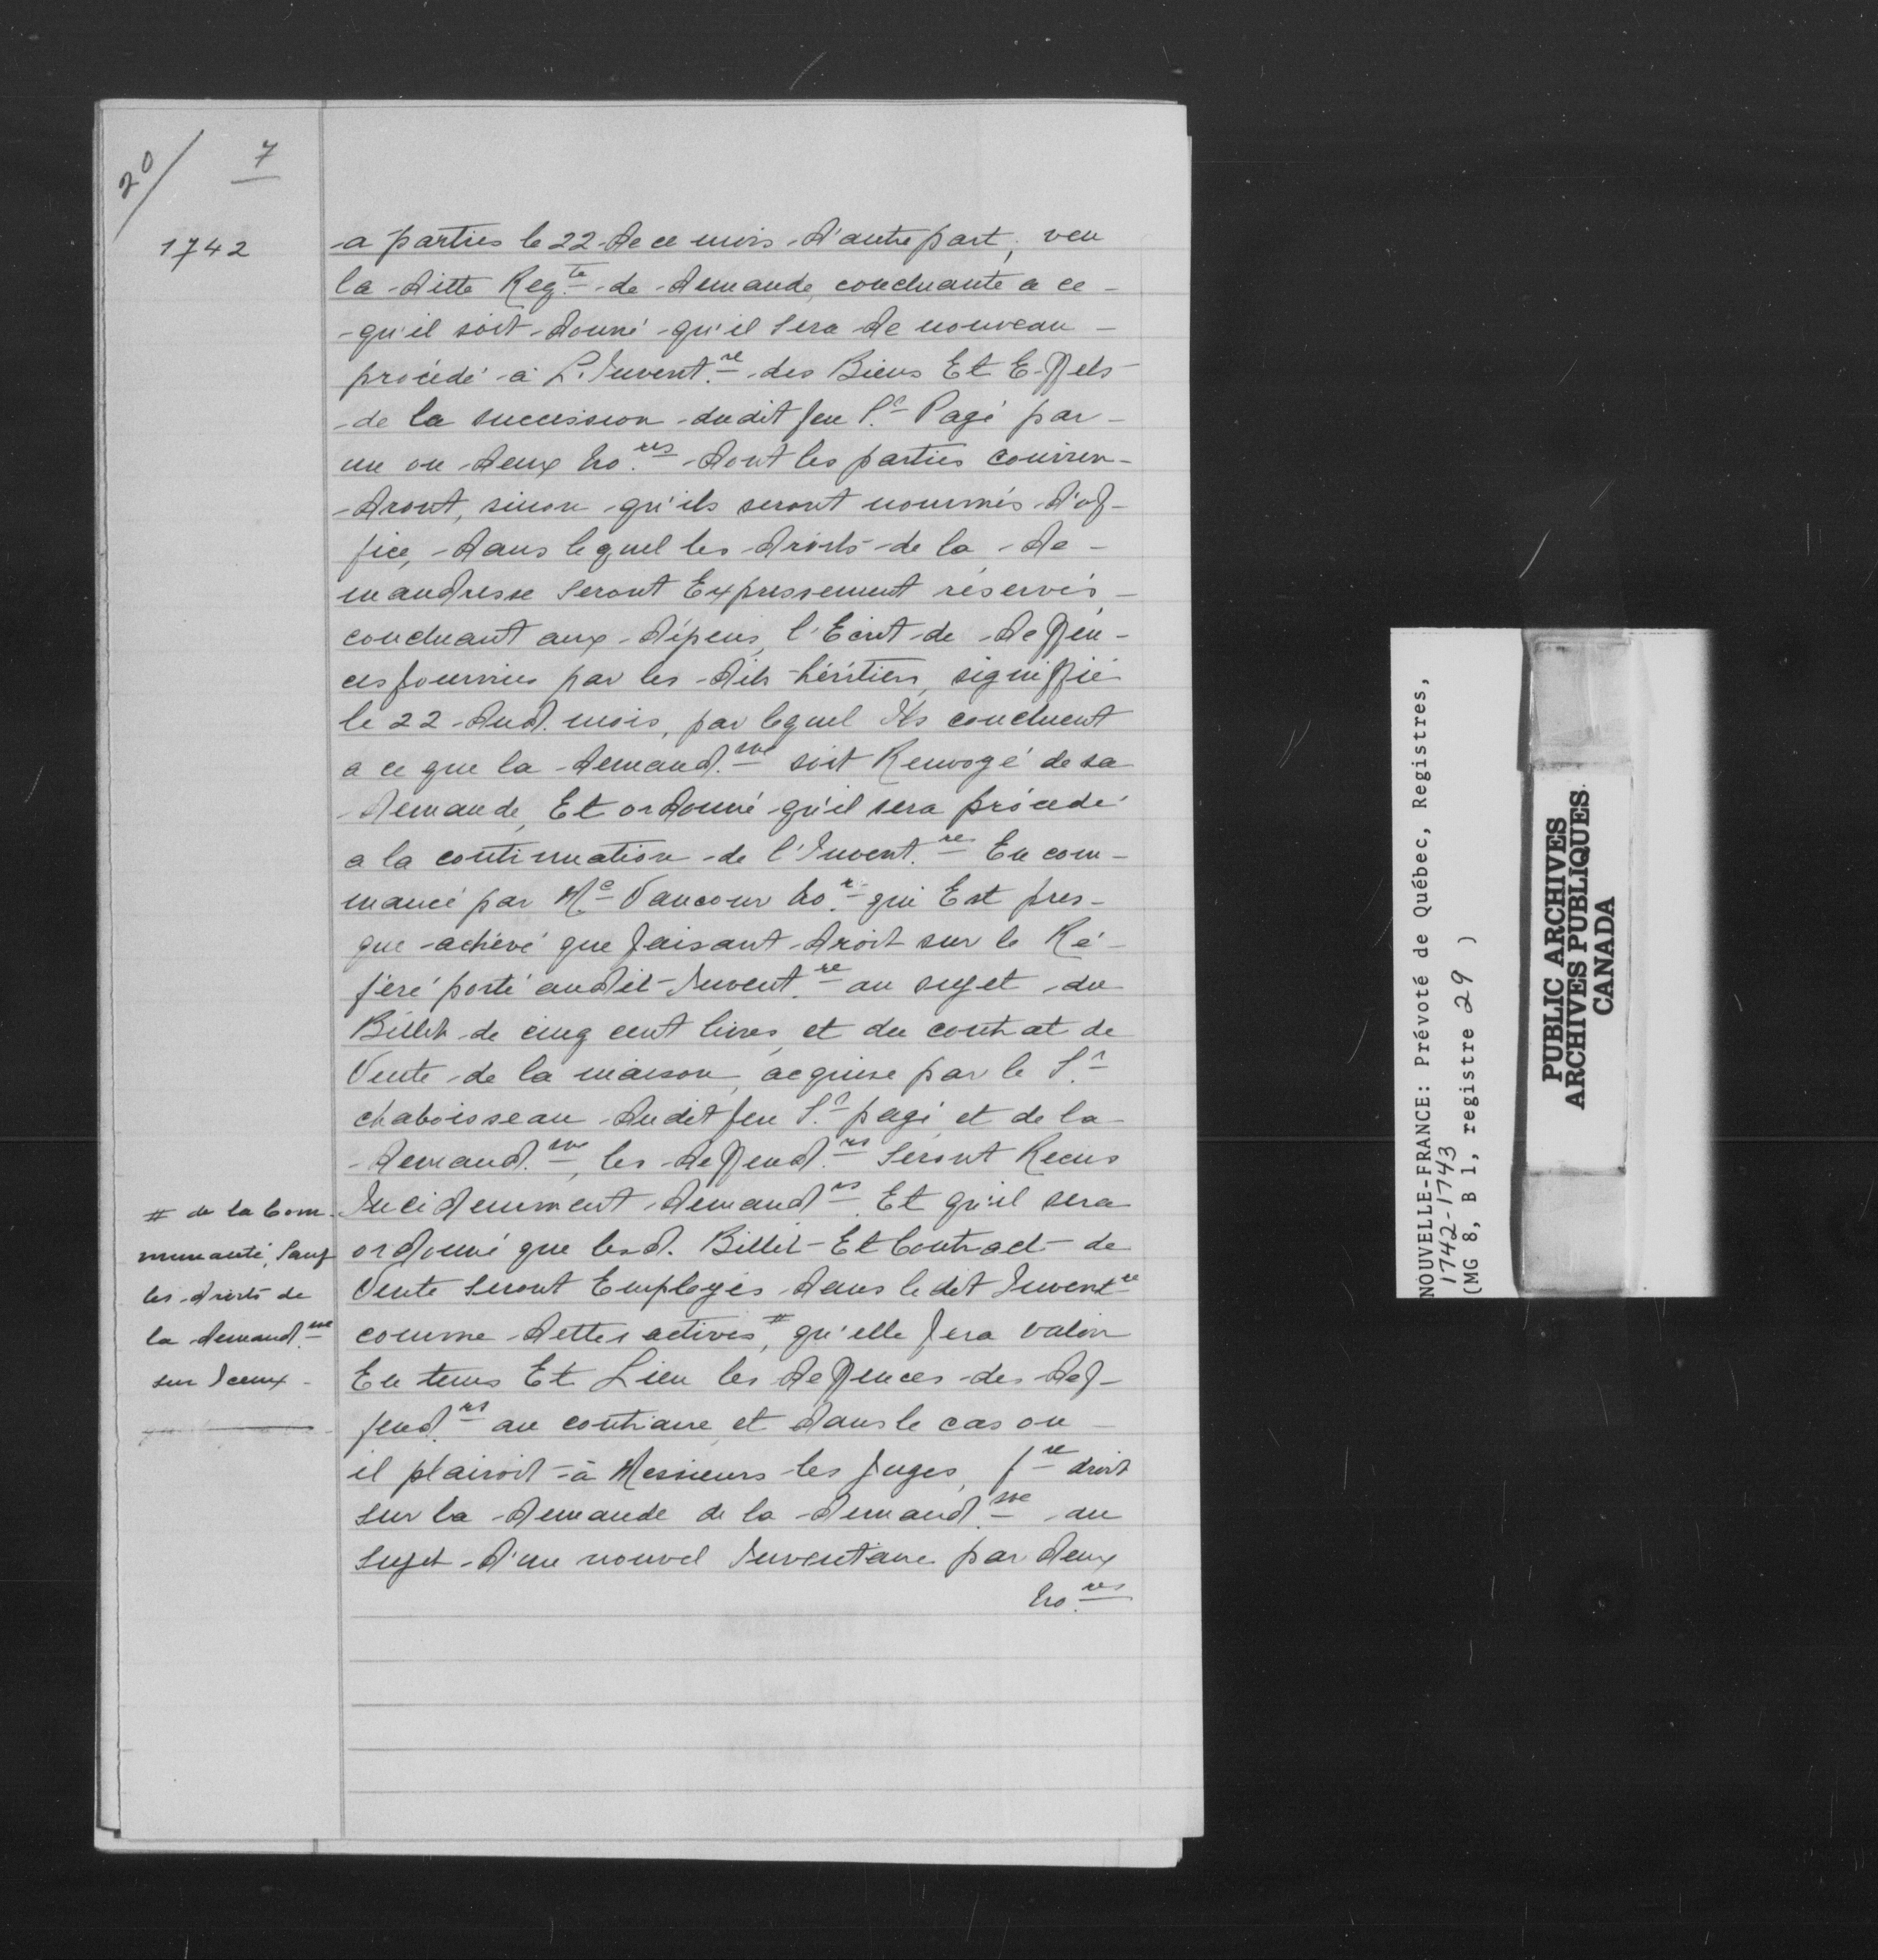 20/ 7
1742
a parties le 22 de ce mois d'autre part, veu
la ditte Reqte de demande, concluante a ce
qu'il soit donné qu'il sera de nouveau
procédé à L'Inventre des Biens Et Effets
de la succession dudit feu Sr Pagé par
un ou deux nores dont les parties convien-
dront, sinon qu'ils seront nommés d'of-
fice, dans lequel les droits de la de-
mandresse seront Expressement réservés
concluant aux dépens, l'Ecrit de deffen-
ces fournies par les dits héritiers, signiffié
le 22 dud. mois, par lequel Ils concluent
a ce que la demand.sse soit Renvoyé de sa
demande, Et ordonné qu'il sera procédé
a la continuation de l'Invent.re En com-
mancé par Me Vancour no.re qui Est pres-
que achévé que faisant droit sur le Ré-
féré porté audit Invent.re au sujet du
Billet de cinq cent livres, et du contrat de
Vente de la maison, acquise par le Sr
chaboisseau dudit feu Sr pagé et de la
demand.sse, les deffend.rs seront Recus
Incidemment demandrs. Et qu'il sera
ordonné que lesd. Billet Et Contract de
Vente seront Employés dans le dit Inventre
comme dettes actives,# qu'elle fera valoir
En tems Et Lieu les deffences des def-
fend.rs au contraire, et dans le cas ou
il plairoit à Messieurs les Juges, fre droit
sur la demande de la demand.sse au
sujet d'un nouvel Inventaire par deux
no.res
# de la Com-
munauté, Sauf
les droits de
la demand.sse
sur Iceux
NOUVELLE-FRANCE: Prévoté de Québec, Registres,
1742-1743
(MG 8, B 1, registre 29 )
PUBLIC ARCHIVES
ARCHIVES PUBLIQUES
CANADA